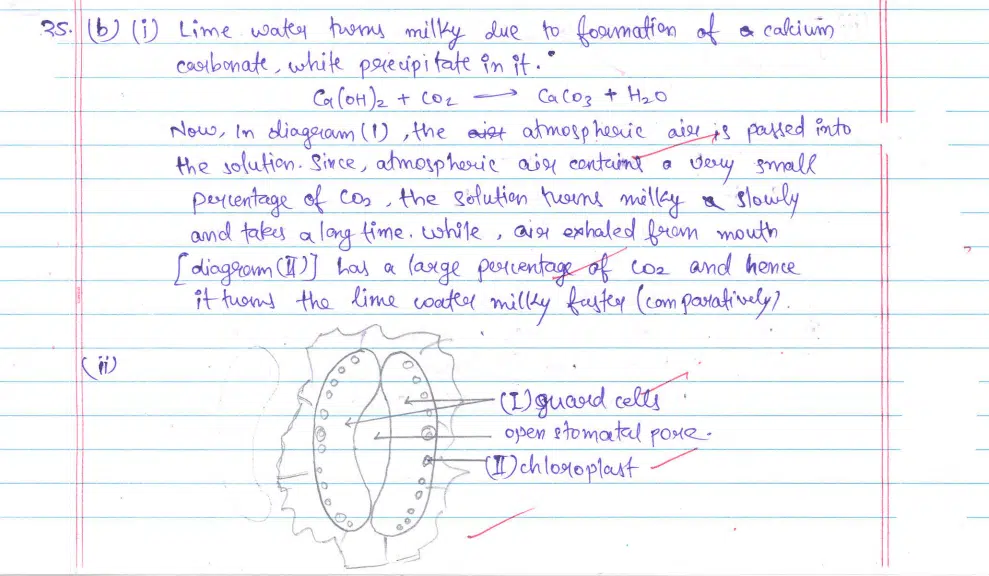 35. (b) (i) Lime water turns milky due to formation of a calcium
carbonate, white precipitate in it.
Ca(OH)2 + CO2 → CaCO3 + H2O
Now, In diagram (I), the air atmospheric air is passed into
the solution. Since, atmospheric air contains a very small
percentage of CO2, the solution turns milky slowly
and takes a long time. While, air exhaled from mouth
[diagram (II)] has a large percentage of CO2 and hence
it turns the lime water milky faster (comparatively).
(ii)
(I) guard cells
open stomatal pore.
(II) chloroplast